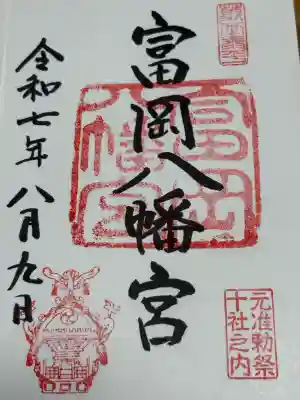 富岡八幡宮
元准勅祭
十社之内
令和七年八月九日